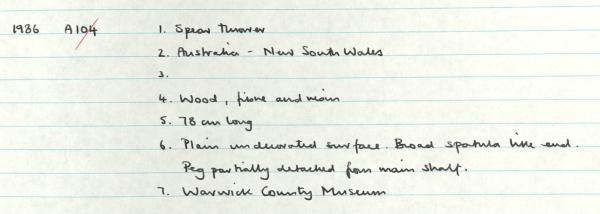 1936 A104 1. Spear Thrower
2. Australia - New South Wales
3.
4. Wood, fibre and resin
5. 78 cm long
6. Plain undecorated surface. Broad spatula like end.
Peg partially detached from main shaft.
7. Warwick County Museum